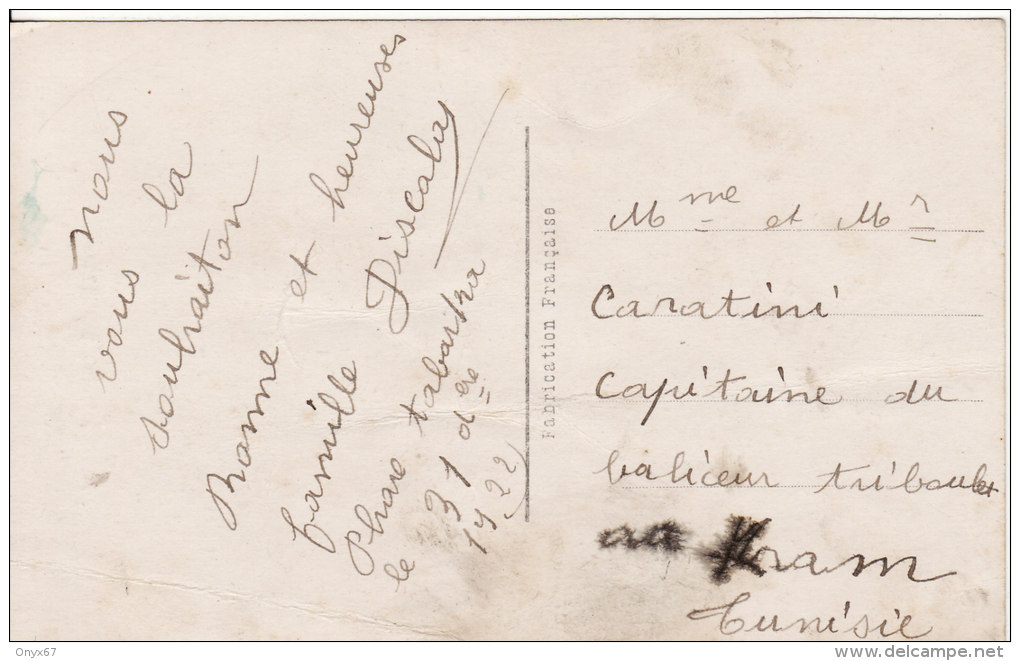 nous
vous la
souhaiton
Bonne et heureuses
famille Discala
Phare tabarka
le 31 dere
1922
Fabrication Française
Mme et Mr
Caratini
Capitaine du
baliceur triboulet
au Kram
Tunisie
Onyx67
www.delcampe.net